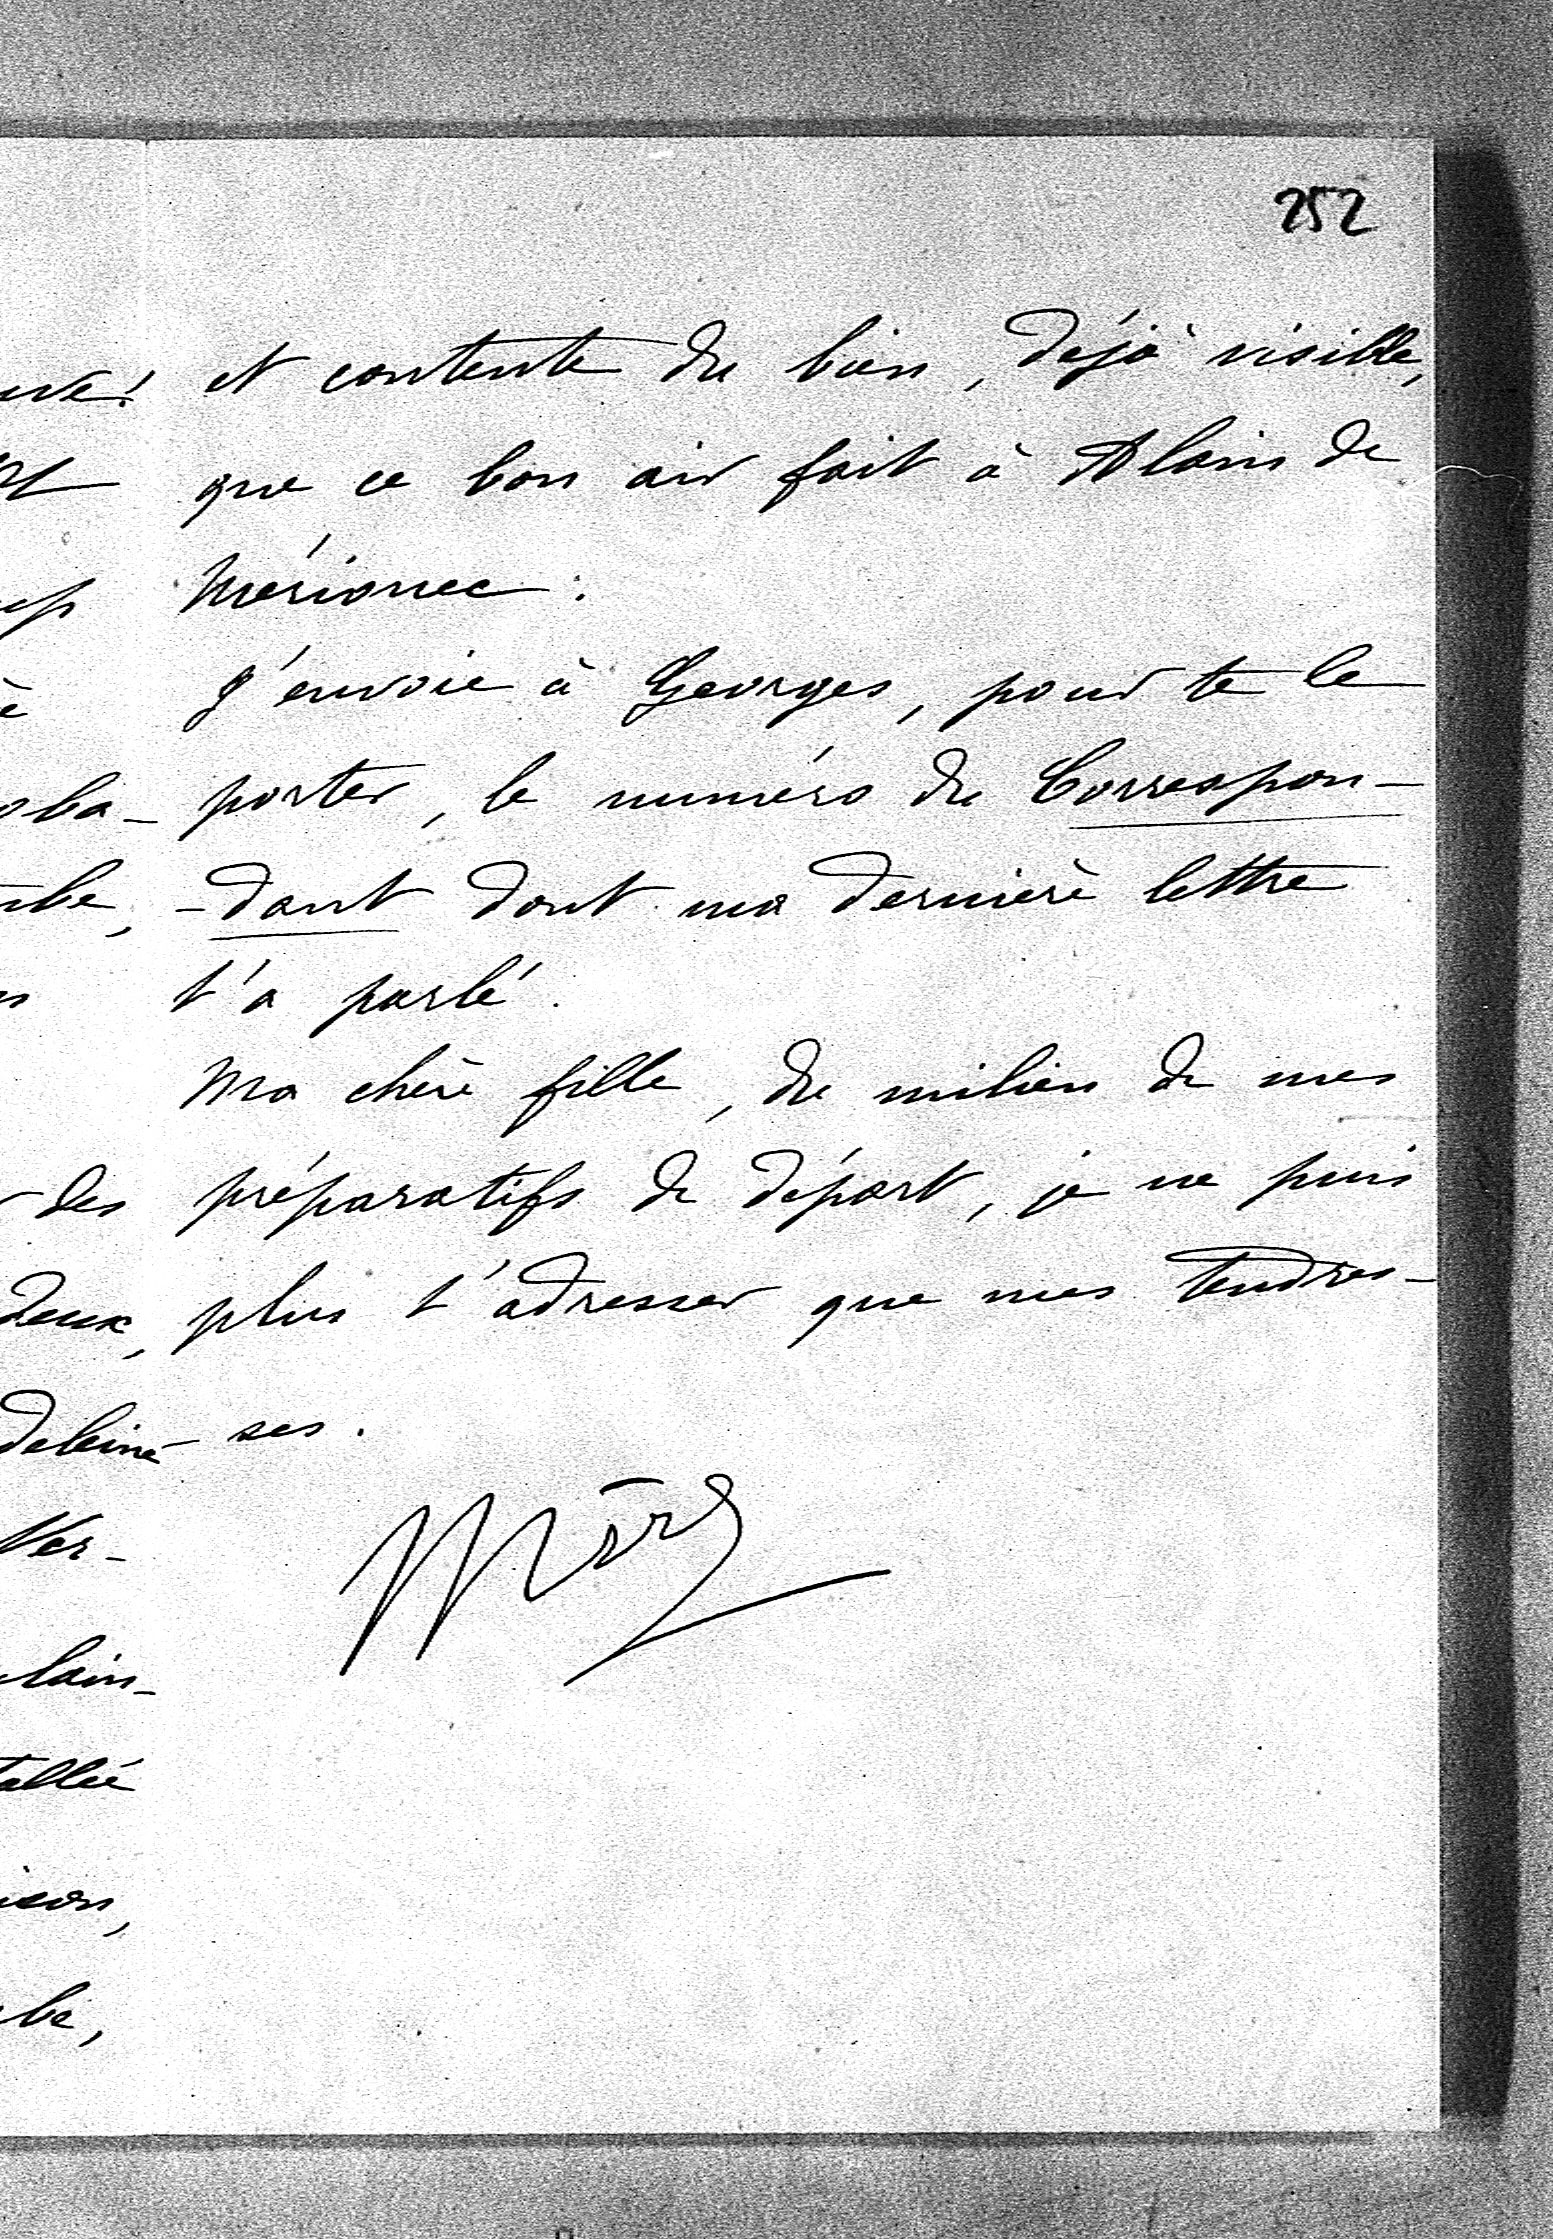 252
et contente du bien, déjà visible,
que ce bon air fait à Alain de
Mérionec.
J'envoie à Georges, pour te le
porter, le numéro du Correspon-
-dant dont ma dernière lettre
t'a parlé.
Ma chère fille, du milieu de mes
préparatifs de départ, je ne puis
plus t'adresser que mes tendres-
ses.